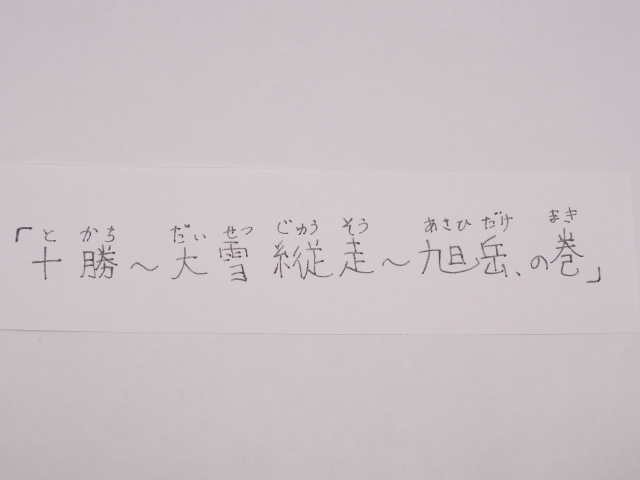 と かち だい せつ じゅう そう あさひ だけ まき
「十勝～大雪縦走～旭岳、の巻」